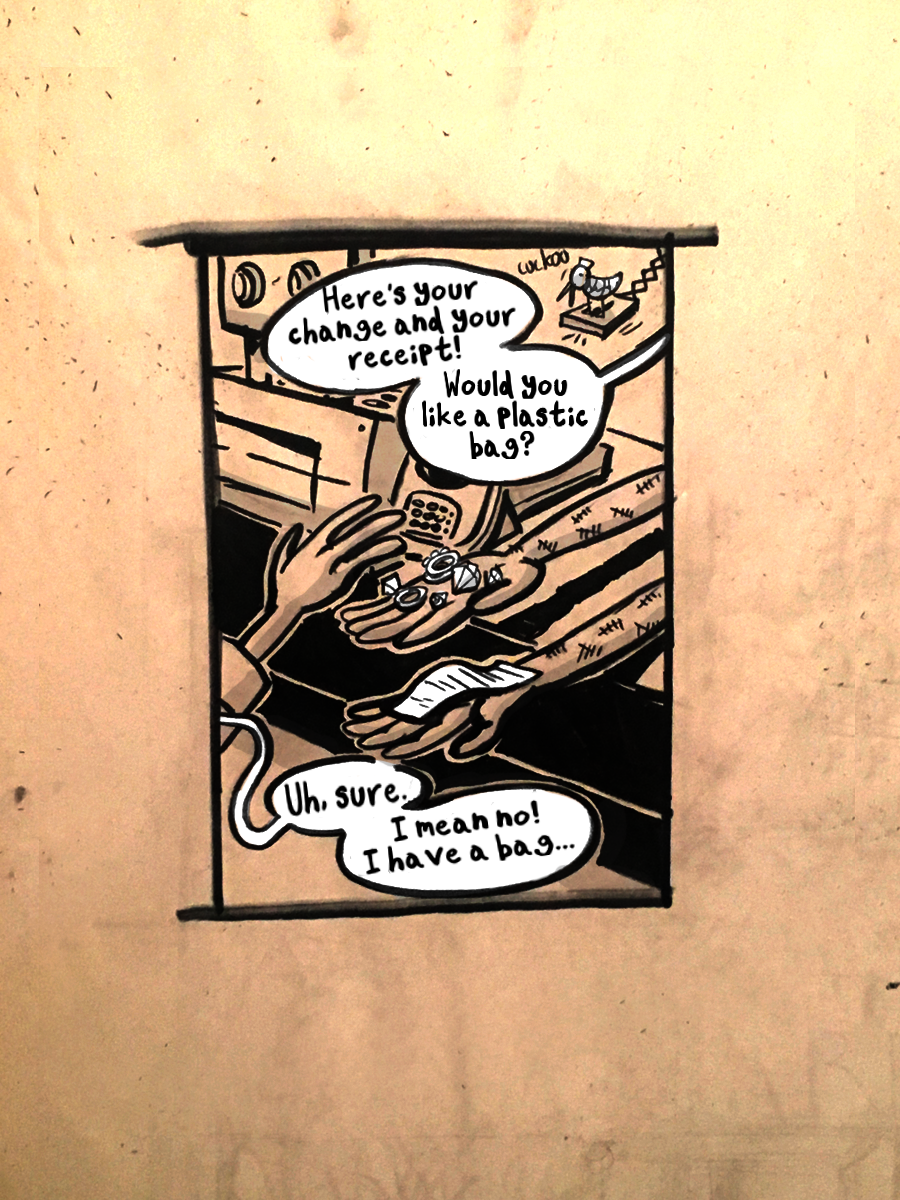 cuckoo
Here's your
change and your
receipt!
Would you
like a plastic
bag?
Uh, sure.
I mean no!
I have a bag...